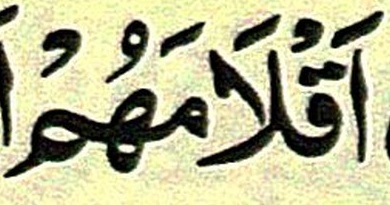 اَقْلَامَهُمْ